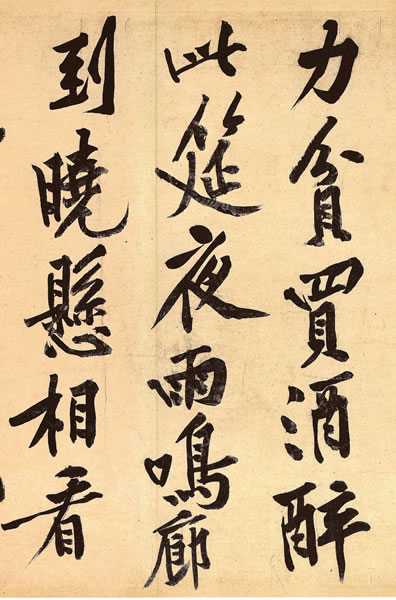 力貧買酒醉
此筵夜雨鳴廊
到曉懸相看